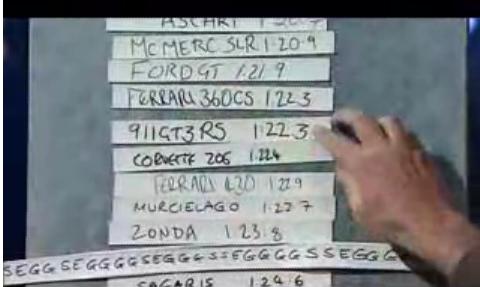 ASCARI 1·20·7
McMERC SLR 1·20·9
FORD GT 1·21·9
FERRARI 360CS 1·22·3
911GT3 RS 1·22·3
CORVETTE Z06 1·22·4
FERRARI 430 1·22·9
MURCIELAGO 1·22·7
ZONDA 1·23·8
SEGGSEGGGGSEGGGSSEGGGGSSEGGG
SAGARIS 1·24·6